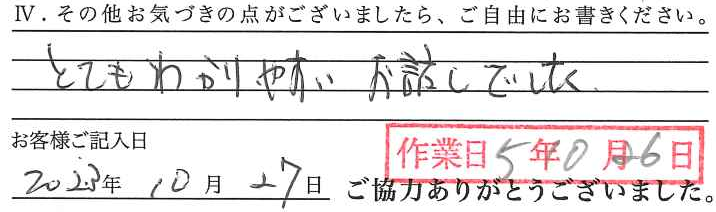 Ⅳ．その他お気づきの点がございましたら、ご自由にお書きください。
とてもわかりやすい お話しでした
お客様ご記入日
作業日 5年10月26日
2023年 10月 27日 ご協力ありがとうございました。